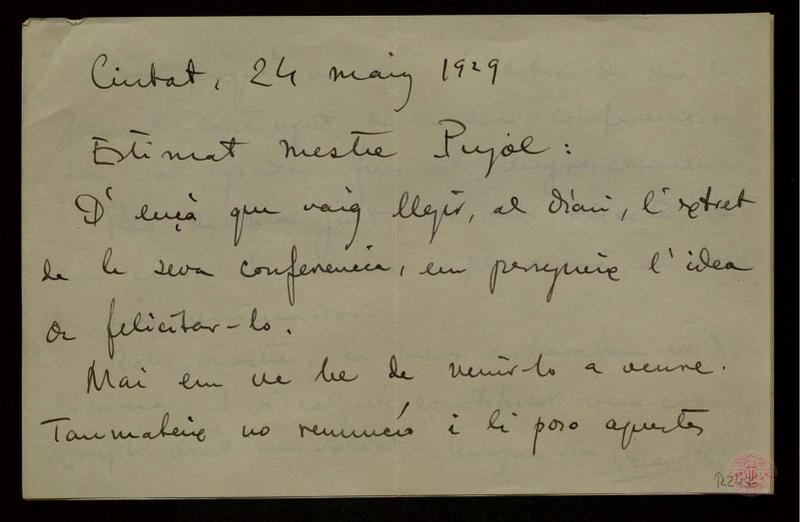 Ciutat, 24 maig 1929
Estimat mestre Pujol:
D'ençà que vaig llegir, al diari, l'extret
de la seva conferencia, em persegueix l'idea
de felicitar-lo.
Mai em ve be de venir-lo a veure.
Tanmateix no renuncío i li poso aquestes